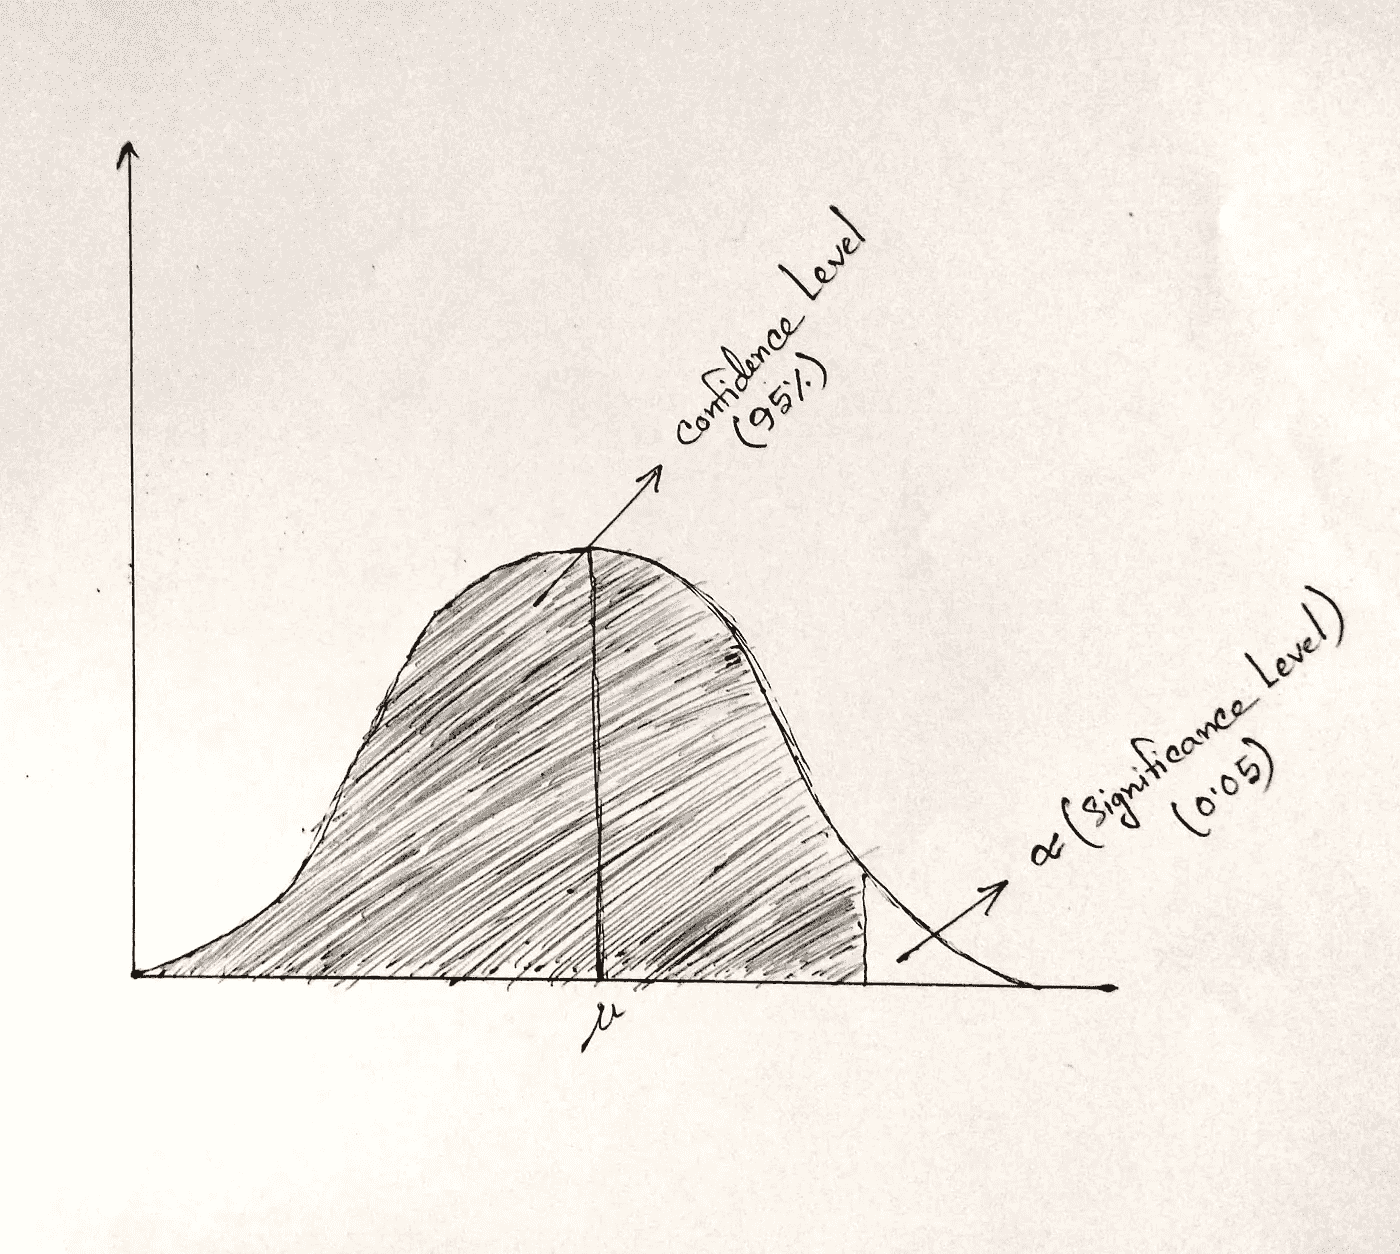 Confidence Level
(95%)
α (Significance Level)
(0.05)
μ